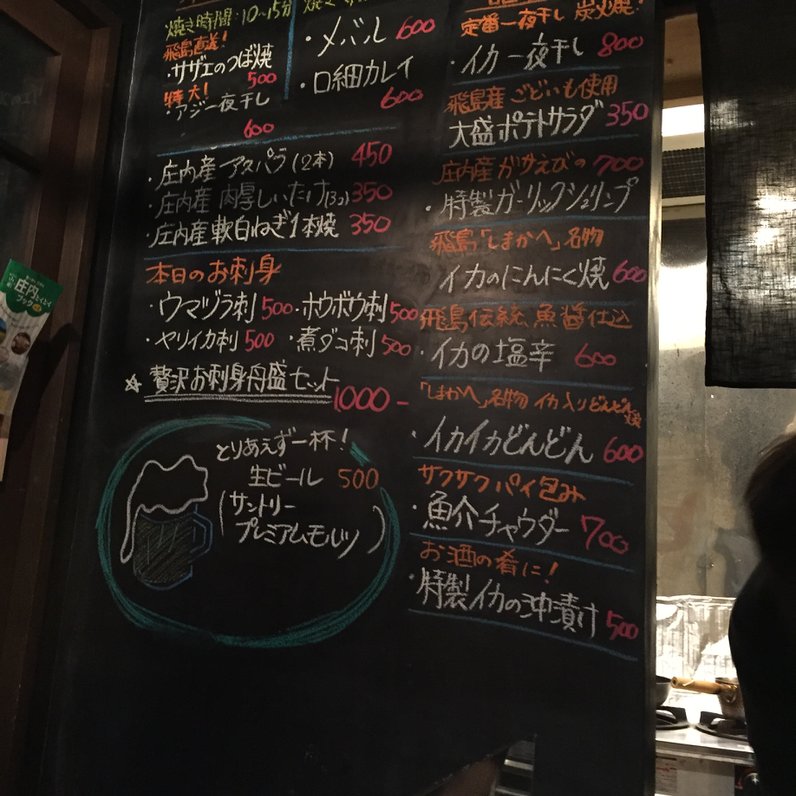 焼き時間:10~15分
飛島直送!
・サザエのつぼ焼
500
特大!
・アジ一夜干し
600
・メバル 600
・口細カレイ
600
・庄内産 アスパラ(2本) 450
・庄内産 肉厚しいたけ(3コ) 350
・庄内産 軟白ねぎ1本焼 350
本日のお刺身
・ウマヅラ刺 500 ・ホウボウ刺 500
・ヤリイカ刺 500 ・煮ダコ刺 500
☆贅沢お刺身舟盛セット 1000-
とりあえず一杯!
生ビール 500
(サントリー
プレミアムモルツ)
定番一夜干し 炭火焼!
・イカ一夜干し 800
飛島産ごどいも使用
大盛ポテトサラダ 350
庄内産がさえびの 700
・特製ガーリックシュリンプ
飛島「しまかへ」名物
イカのにんにく焼 600
飛島伝統、魚醤仕込
・イカの塩辛 600
「しまかへ」名物 イカ入りどんどん焼
・イカイカどんどん 600
サクサクパイ包み
・魚介チャウダー 700
お酒の肴に!
・特製イカの沖漬け 500
庄内